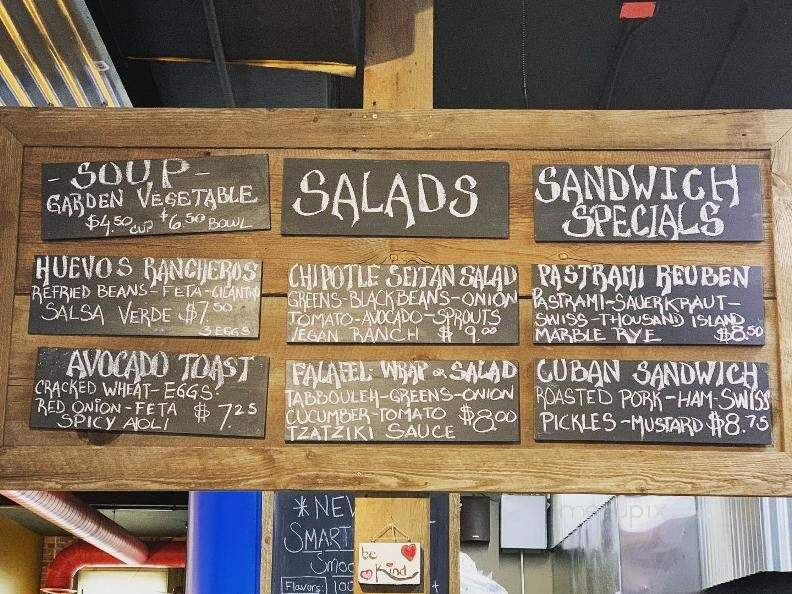 - SOUP -
GARDEN VEGETABLE
$4.50 CUP $6.50 BOWL
HUEVOS RANCHEROS
REFRIED BEANS - FETA - CILANTRO
SALSA VERDE $7.50
3 EGGS
AVOCADO TOAST
CRACKED WHEAT - EGGS -
RED ONION - FETA $7.25
SPICY AIOLI
SALADS
CHIPOTLE SEITAN SALAD
GREENS - BLACK BEANS - ONION
TOMATO - AVOCADO - SPROUTS
VEGAN RANCH $9.00
FALAFEL WRAP OR SALAD
TABBOULEH - GREENS - ONION
CUCUMBER - TOMATO $8.00
TZATZIKI SAUCE
SANDWICH
SPECIALS
PASTRAMI REUBEN
PASTRAMI - SAUERKRAUT -
SWISS - THOUSAND ISLAND
MARBLE RYE $8.50
CUBAN SANDWICH
ROASTED PORK - HAM - SWISS
PICKLES - MUSTARD $8.75
* NEW
SMART
Smoo
Flavors: 100
be
kind
menupix